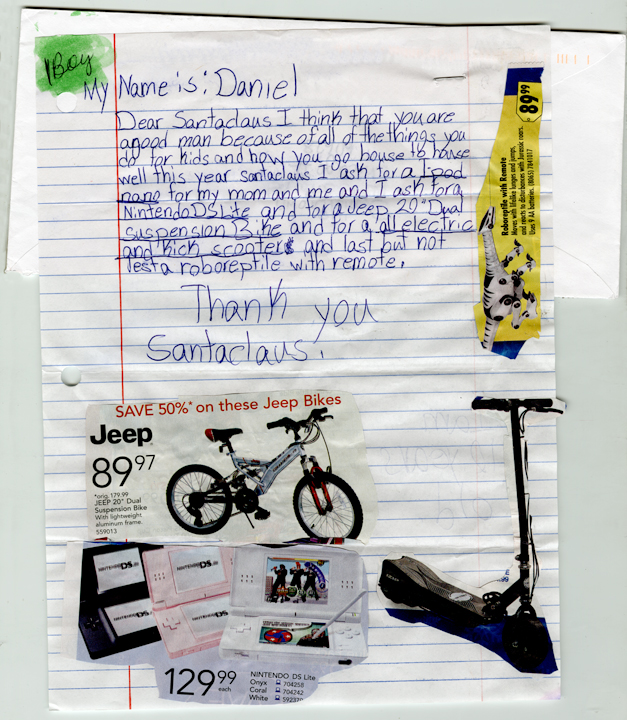 Boy
My Name is: Daniel
Dear Santaclaus I think that you are
a good man because of all of the things you
do for kids and how you go house to house
well this year santaclaus I ask for a Ipod
nano for my mom and me and I ask for a
Nintendo DS Lite and for a Jeep 20" Dual
suspension Bike and for a all electric
and kick scooter and last but not
lest a roboreptile with remote.
Thank you
Santaclaus!
89.99
Roboreptile with Remote
Moves with lifelike lunges and jumps,
and reacts to disturbances with Jurassic roars.
Uses 9 AA batteries. (8065) 7841017
SAVE 50%* on these Jeep Bikes
Jeep
89 97
*orig. 179.99
JEEP 20" Dual
Suspension Bike
With lightweight
aluminum frame.
559013
NINTENDO DS
NINTENDO DS
NINTENDO DS
NINTENDO DS
129 99
each
NINTENDO DS Lite
Onyx 704258
Coral 704242
White